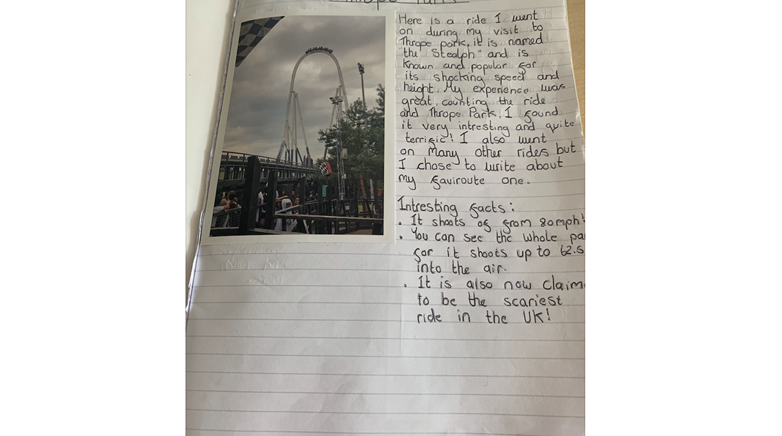 Here is a ride I went
on during my visit to
Thrope park, it is named
the "Stealph" and is
known and popular for
its shocking speed and
height. My experience was
great, counting the ride
and Thrope Park. I found
it very intresting and quite
terrific! I also went
on many other rides but
I chose to write about
my faviroute one.
Intresting facts:
. It shoots of from 80mph!
. You can see the whole pa
for it shoots up to 62.5
into the air.
. It is also now claim
to be the scariest
ride in the UK!